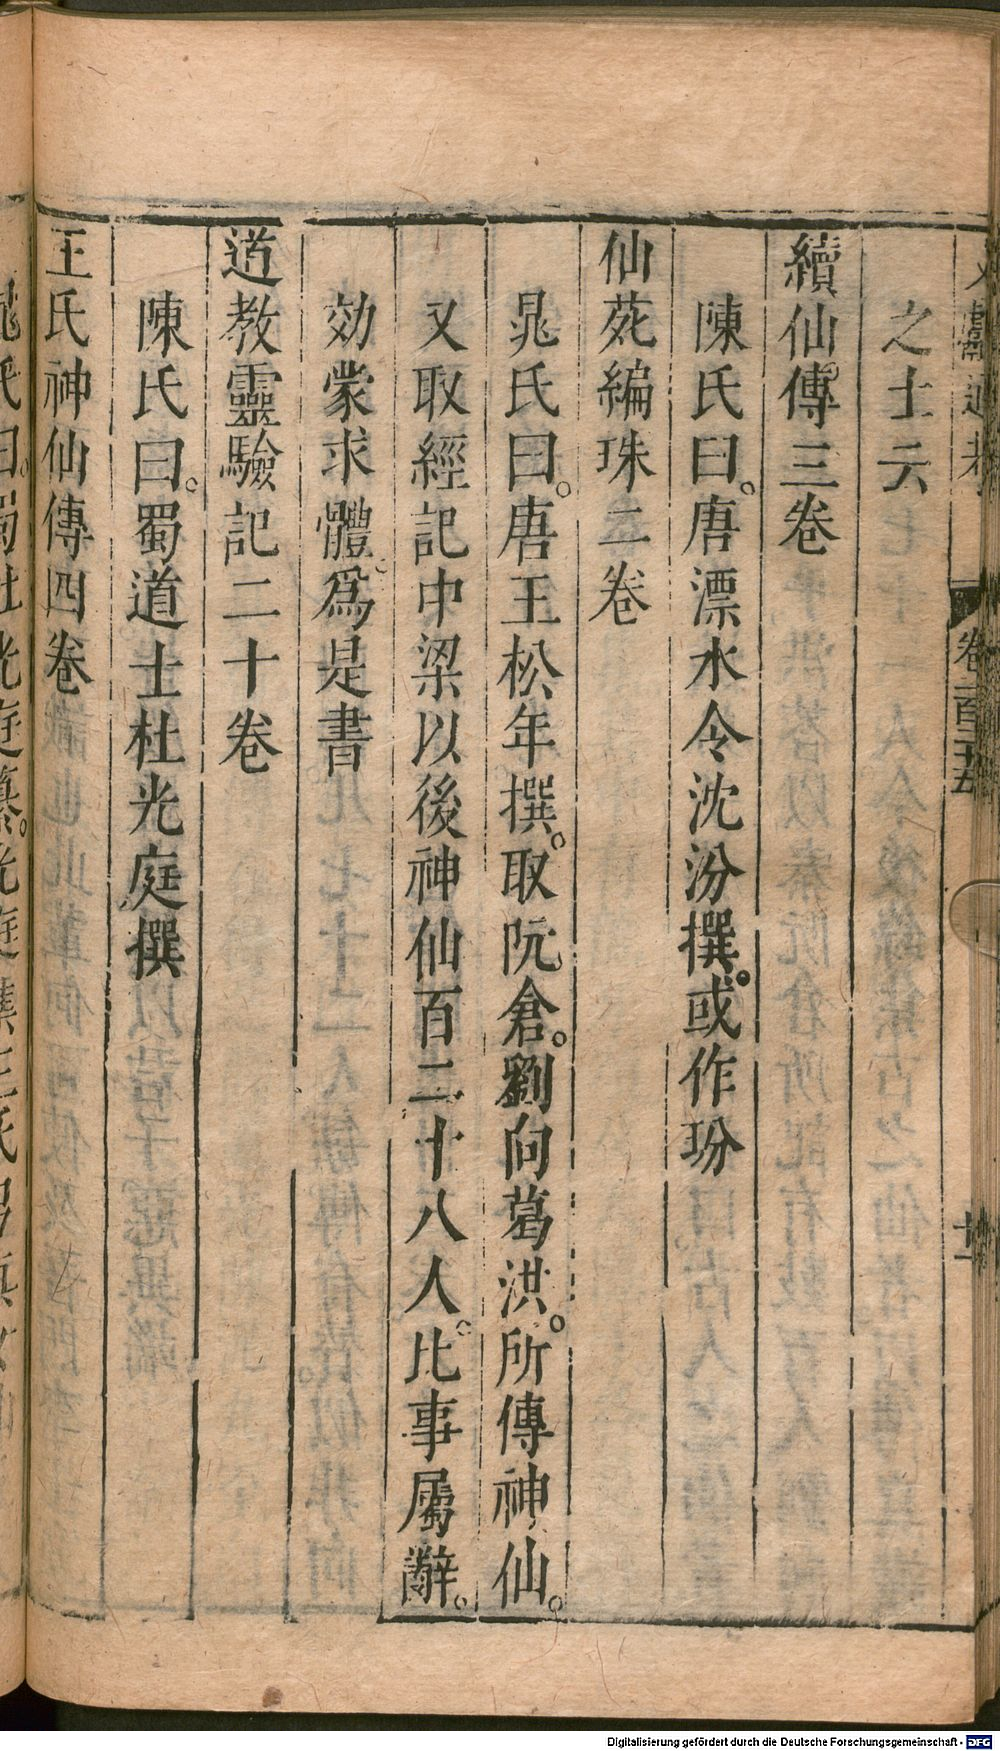 文獻通考 卷二百二十五 十一
之士云
續仙傳三卷
陳氏曰。唐漂水令沈汾撰。或作玢
仙苑編珠二卷
晁氏曰。唐王松年撰。取阮倉。劉向葛洪。所傳神仙。
又取經記中梁以後神仙百二十八人。比事屬辭。
効蒙求體。爲是書
道教靈驗記二十卷
陳氏曰。蜀道士杜光庭撰
王氏神仙傳四卷
晁氏曰。蜀杜光庭纂。光庭集王氏
Digitalisierung gefördert durch die Deutsche Forschungsgemeinschaft - DFG